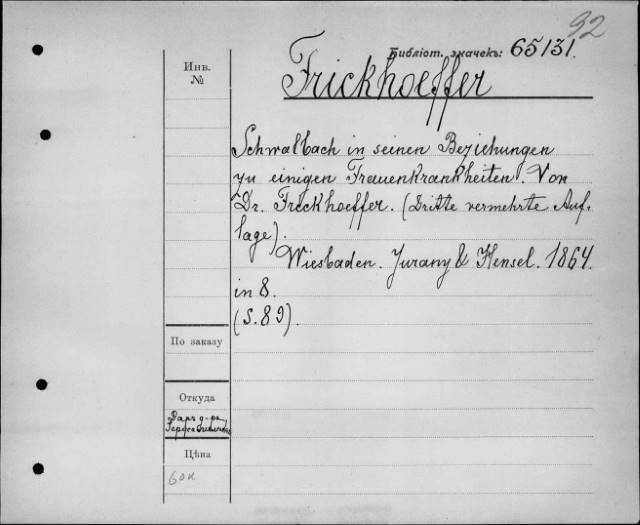 92
Библіот. значекъ: 65131.
Инв.
№
Frickhoeffer
Schwalbach in seinen Beziehungen
zu einigen Frauenkrankheiten. Von
Dr. Frickhoeffer. (Dritte vermehrte Auf-
lage).
Wiesbaden. Jurany & Hensel. 1864.
in 8.
(S. 89).
По заказу
Откуда
Даръ д-ра
Цѣна
60к